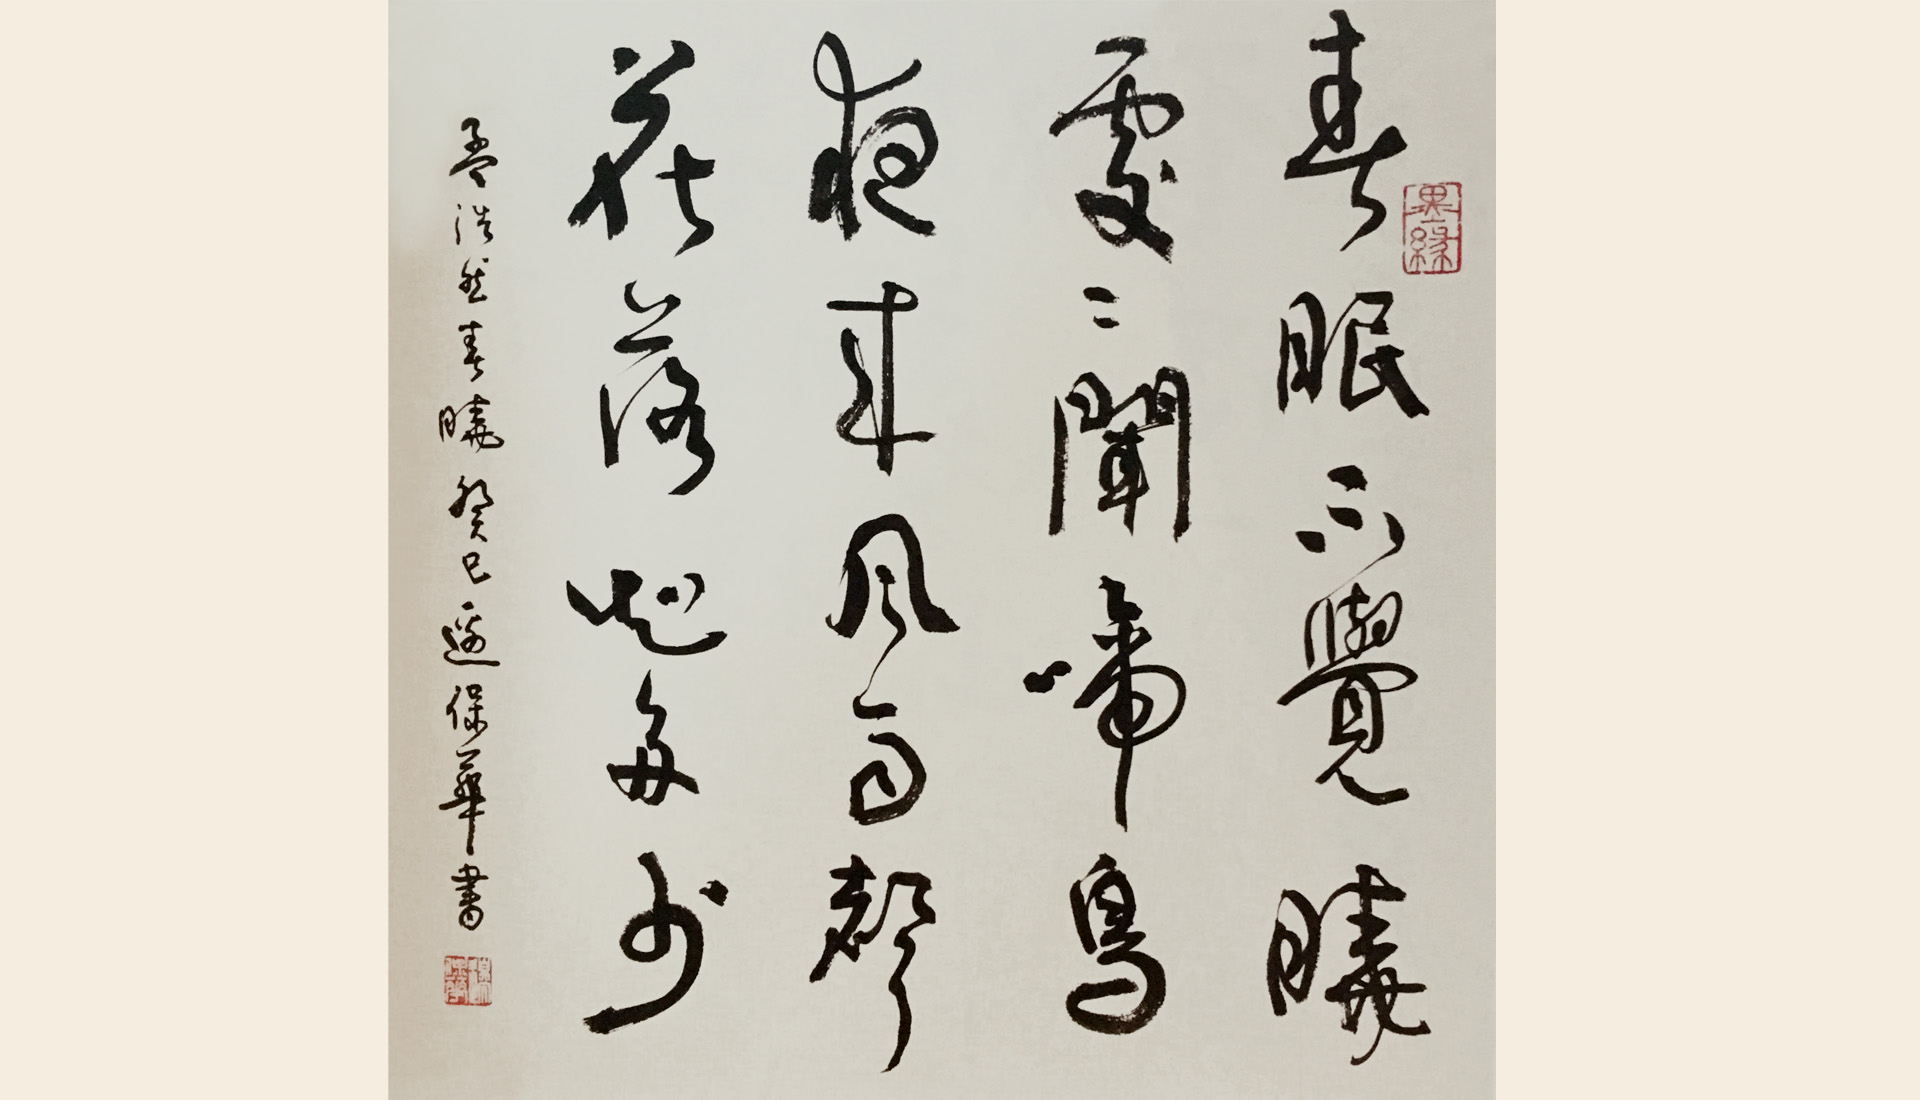 春眠不覺曉
處〻聞啼鳥
夜来風雨聲
花落知多少
孟浩然春曉 癸巳 邊保華書